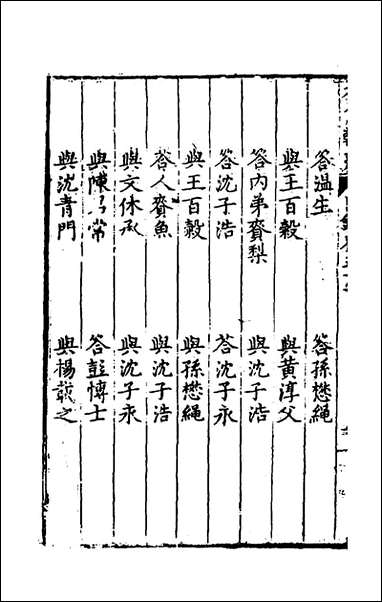 答温生
答孫懋繩
與王百穀
與黄淳父
答内弟賚梨
與沈子浩
答沈子浩
荅沈子永
與王百穀
與孫懋繩
荅人賚魚
與沈子浩
與文休承
與沈子永
與陳常
答彭慱士
與沈青門
與楊之